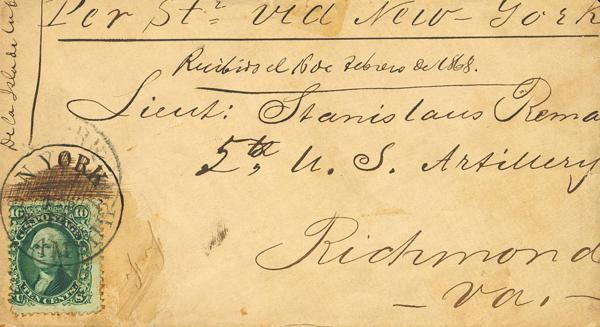 Per Str via New-York
De la Isla de Cub
Recibido el 18 de Febrero de 1868.
Lieut: Stanislaus Rema
5th, U. S. Artillery
Richmond
- Va. -
N YORK
10 10
U.S. POSTAGE
TEN CENTS
U S